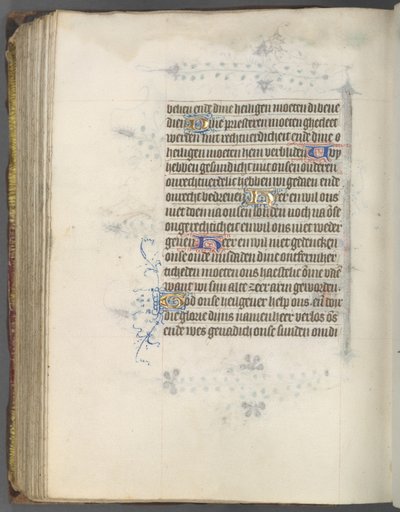 velien ende dine heiligen moeten di bene
dien Dine priesteren moeten ghecleet
werden mit rechtverdicheit ende dine
heiligen moeten hem verbliden Wy
hebben gesundicht mit onsen ouderen
onrechtverdelic hebben wi gedaen ende
onrecht bedreven Heer en wil ons
niet doen na onsen sonden noch na
ongerechticheit en wil ons niet weder
geven Heer en wil niet gedencken
onse oude misdaden dine ontfermher
ticheden moeten ons haestelic
want wi sijn alte zeer arm geworden
God onse heilgever help ons en
die glorie dijns namen heer verlos
ende wes genadich onse sunden om di